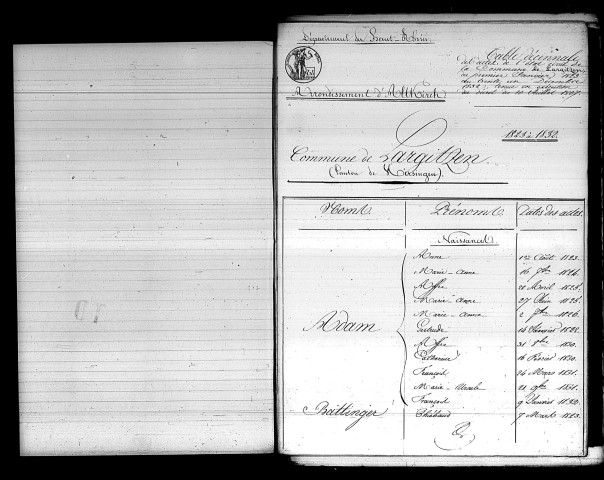 Département du Haut-Rhin.
Arrondissement d'Altkirch
Table décennale
des actes de l'état civil de
la Commune de Largitzen
du premier Janvier 1823
au trente un Décembre
1832, tenue en exécution
du décret du 20 Juillet 1807.
1823 à 1832.
Commune de Largitzen
(Canton de Hirsingen).
Noms Prénoms Dates des actes
Naissances
Adam
Anne 1er Août 1823.
Marie-Anne 16 7bre 1824.
Marie-Anne 27 Juin 1825.
Marie-Anne 2 1826.
Gertrude 14 Février 1828.
31 8bre 1830.
Catherine 16 Février 1830.
François 26 Mars 1831.
Marie-Ursule 21 9bre 1831.
François 9 Janvier 1832.
Battinger Thiébaud 7 Mars 1823.